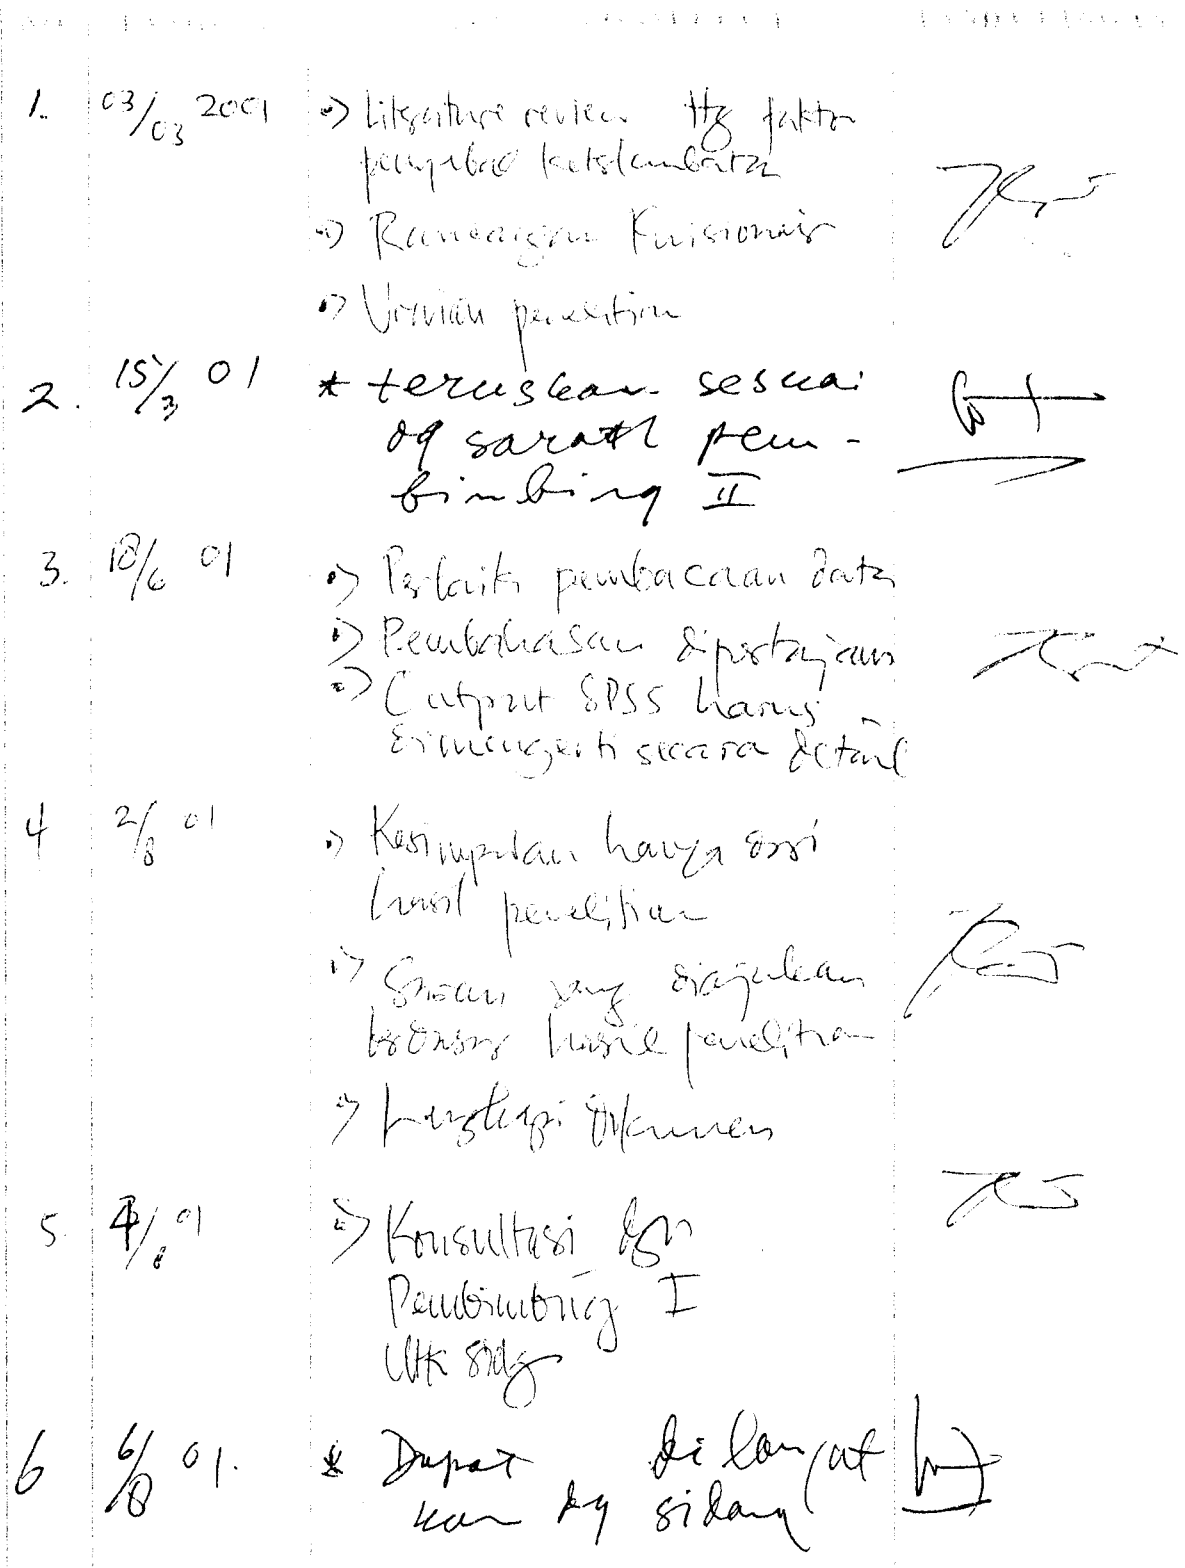 1. 03/03 2001 •) Literature review ttg faktor
penyebab keterlambatan
•) Rancangan Kuisioner
•) Urutan penelitian
2. 15/3 01 * teruskan sesuai
dg sarath pem-
bimbing II
3. 18/6 01 •) Perbaiki pembacaan data
•) Pembahasan dipertajam
•) Output SPSS harus
dimengerti secara detail
4 2/8 01 •) Kesimpulan hanya dari
hasil penelitian
•) Saran yang diajukan
berdasar hasil penelitian
•) Lengkapi dokumen
5. 4/8 01 •) Konsultasi dgn
Pembimbing I
Utk sidg
6 6/8 01. * Dapat dilanjut
kan dg sidang